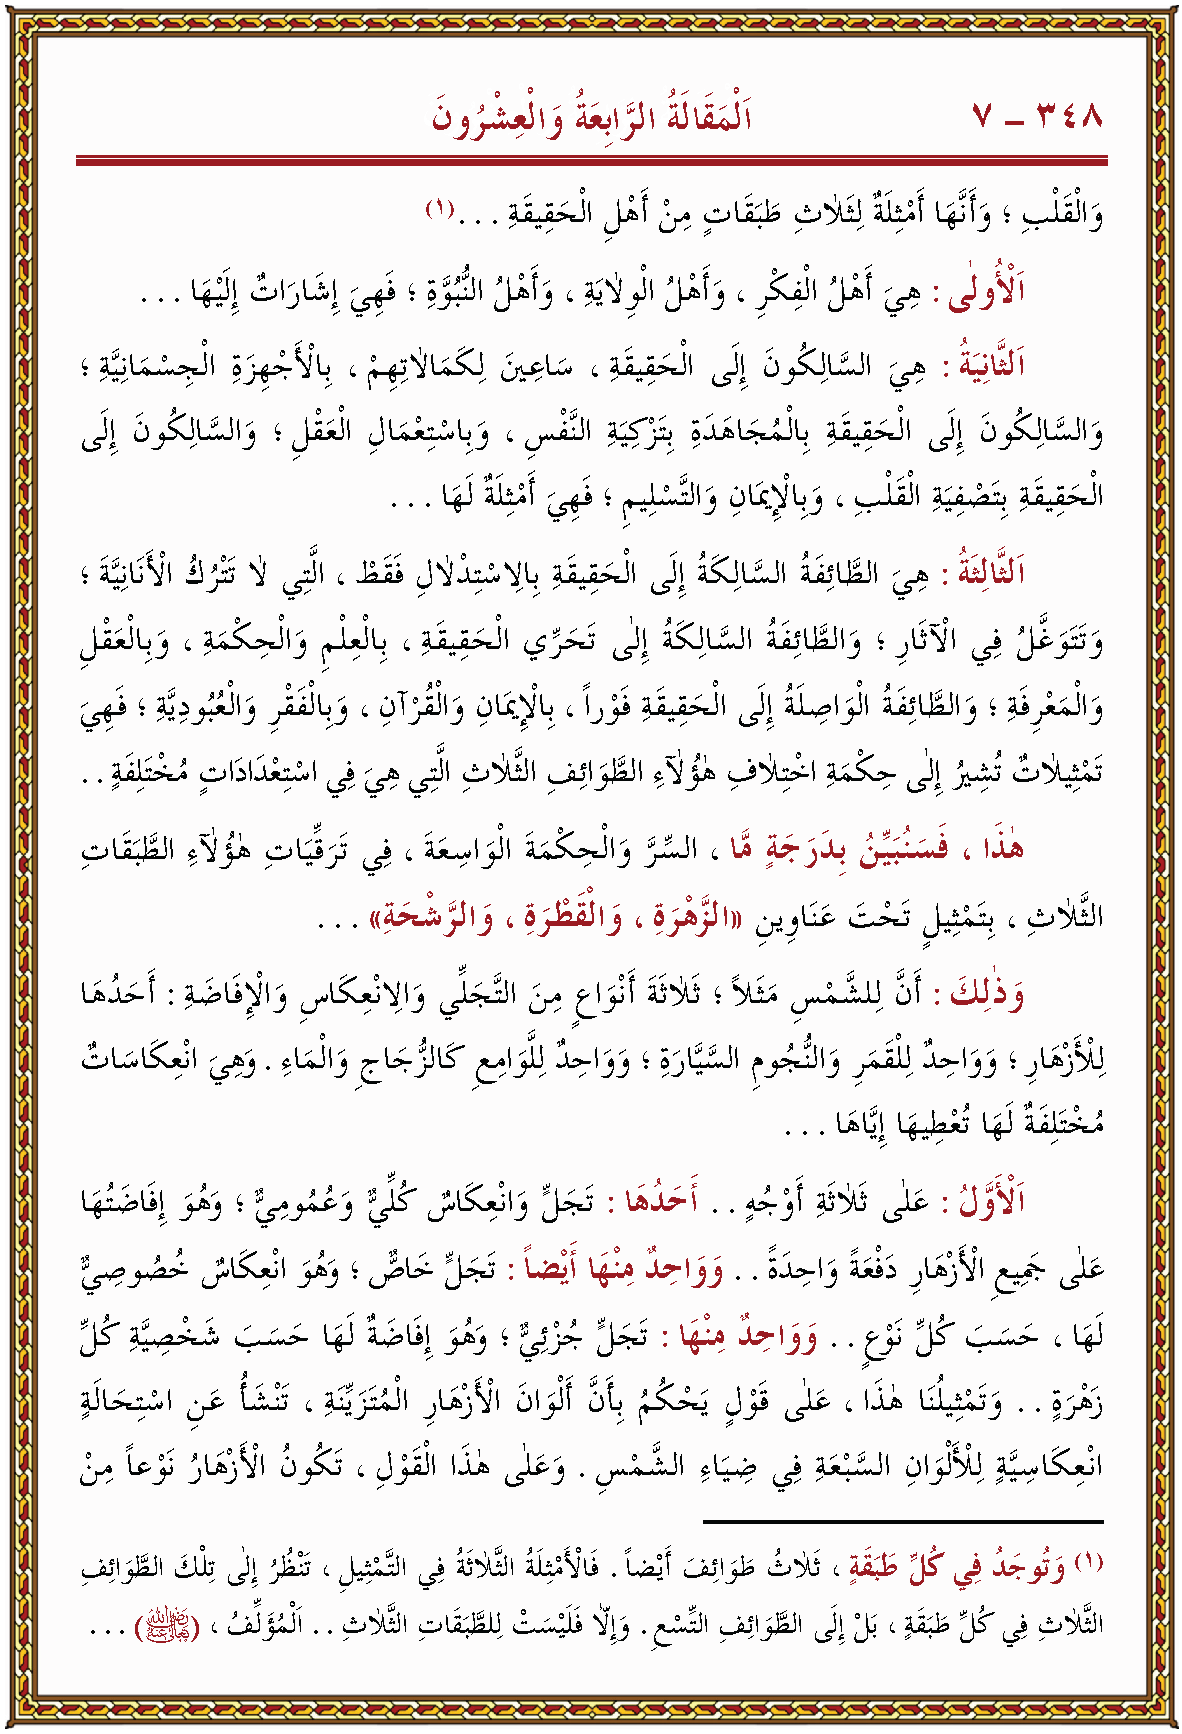 ٣٤٨ – ٧ اَلْمَقَالَةُ الرَّابِعَةُ وَالْعِشْرُونَ
وَالْقَلْبِ ؛ وَأَنَّهَا أَمْثِلَةٌ لِثَلٰاثِ طَبَقَاتٍ مِنْ أَهْلِ الْحَقِيقَةِ . . .(١)
اَلْأُولٰى : هِيَ أَهْلُ الْفِكْرِ ، وَأَهْلُ الْوِلاٰيَةِ ، وَأَهْلُ النُّبُوَّةِ ؛ فَهِيَ إِشَارَاتٌ إِلَيْهَا . . .
اَلثَّانِيَةُ : هِيَ السَّالِكُونَ إِلَى الْحَقِيقَةِ ، سَاعِينَ لِكَمَالاٰتِهِمْ ، بِالْأَجْهِزَةِ الْجِسْمَانِيَّةِ ؛
وَالسَّالِكُونَ إِلَى الْحَقِيقَةِ بِالْمُجَاهَدَةِ بِتَزْكِيَةِ النَّفْسِ ، وَبِاسْتِعْمَالِ الْعَقْلِ ؛ وَالسَّالِكُونَ إِلَى
الْحَقِيقَةِ بِتَصْفِيَةِ الْقَلْبِ ، وَبِالْإِيمَانِ وَالتَّسْلِيمِ ؛ فَهِيَ أَمْثِلَةٌ لَهَا . . .
اَلثَّالِثَةُ : هِيَ الطَّائِفَةُ السَّالِكَةُ إِلَى الْحَقِيقَةِ بِالِاسْتِدْلاٰلِ فَقَطْ ، الَّتِي لاٰ تَتْرُكُ الْأَنَانِيَّةَ ؛
وَتَتَوَغَّلُ فِي الْآثَارِ ؛ وَالطَّائِفَةُ السَّالِكَةُ إِلٰى تَحَرِّي الْحَقِيقَةِ ، بِالْعِلْمِ وَالْحِكْمَةِ ، وَبِالْعَقْلِ
وَالْمَعْرِفَةِ ؛ وَالطَّائِفَةُ الْوَاصِلَةُ إِلَى الْحَقِيقَةِ فَوْراً ، بِالْإِيمَانِ وَالْقُرْآنِ ، وَبِالْفَقْرِ وَالْعُبُودِيَّةِ ؛ فَهِيَ
تَمْثِيلاٰتٌ تُشِيرُ إِلٰى حِكْمَةِ اخْتِلاٰفِ هٰؤُلآٰءِ الطَّوَائِفِ الثَّلاٰثِ الَّتِي هِيَ فِي اسْتِعْدَادَاتٍ مُخْتَلِفَةٍ . .
هٰذَا ، فَسَنُبَيِّنُ بِدَرَجَةٍ مَّا ، السِّرَّ وَالْحِكْمَةَ الْوَاسِعَةَ ، فِي تَرَقِّيَاتِ هٰؤُلآٰءِ الطَّبَقَاتِ
الثَّلاٰثِ ، بِتَمْثِيلٍ تَحْتَ عَنَاوِينِ «الزَّهْرَةِ ، وَالْقَطْرَةِ ، وَالرَّشْحَةِ» . . .
وَذٰلِكَ : أَنَّ لِلشَّمْسِ مَثَلاً ؛ ثَلاٰثَةَ أَنْوَاعٍ مِنَ التَّجَلِّي وَالِانْعِكَاسِ وَالْإِفَاضَةِ : أَحَدُهَا
لِلْأَزْهَارِ ؛ وَوَاحِدٌ لِلْقَمَرِ وَالنُّجُومِ السَّيَّارَةِ ؛ وَوَاحِدٌ لِلَّوَامِعِ كَالزُّجَاجِ وَالْمَاءِ . وَهِيَ انْعِكَاسَاتٌ
مُخْتَلِفَةٌ لَهَا تُعْطِيهَا إِيَّاهَا . . .
اَلْأَوَّلُ : عَلٰى ثَلاٰثَةِ أَوْجُهٍ . . أَحَدُهَا : تَجَلٍّ وَانْعِكَاسٌ كُلِّيٌّ وَعُمُومِيٌّ ؛ وَهُوَ إِفَاضَتُهَا
عَلٰى جَمِيعِ الْأَزْهَارِ دَفْعَةً وَاحِدَةً . . وَوَاحِدٌ مِنْهَا أَيْضاً : تَجَلٍّ خَاصٌّ ؛ وَهُوَ انْعِكَاسٌ خُصُوصِيٌّ
لَهَا ، حَسَبَ كُلِّ نَوْعٍ . . وَوَاحِدٌ مِنْهَا : تَجَلٍّ جُزْئِيٌّ ؛ وَهُوَ إِفَاضَةٌ لَهَا حَسَبَ شَخْصِيَّةِ كُلِّ
زَهْرَةٍ . . وَتَمْثِيلُنَا هٰذَا ، عَلٰى قَوْلٍ يَحْكُمُ بِأَنَّ أَلْوَانَ الْأَزْهَارِ الْمُتَزَيِّنَةِ ، تَنْشَأُ عَنِ اسْتِحَالَةٍ
انْعِكَاسِيَّةٍ لِلْأَلْوَانِ السَّبْعَةِ فِي ضِيَاءِ الشَّمْسِ . وَعَلٰى هٰذَا الْقَوْلِ ، تَكُونُ الْأَزْهَارُ نَوْعاً مِنْ
(١) وَتُوجَدُ فِي كُلِّ طَبَقَةٍ ، ثَلاٰثُ طَوَائِفَ أَيْضاً . فَالْأَمْثِلَةُ الثَّلاٰثَةُ فِي التَّمْثِيلِ ، تَنْظُرُ إِلٰى تِلْكَ الطَّوَائِفِ
الثَّلاٰثِ فِي كُلِّ طَبَقَةٍ ، بَلْ إِلَى الطَّوَائِفِ التِّسْعِ . وَإِلاّٰ فَلَيْسَتْ لِلطَّبَقَاتِ الثَّلاٰثِ . . اَلْمُؤَلِّفُ ، (رضي الله تعالى عنه) . . .